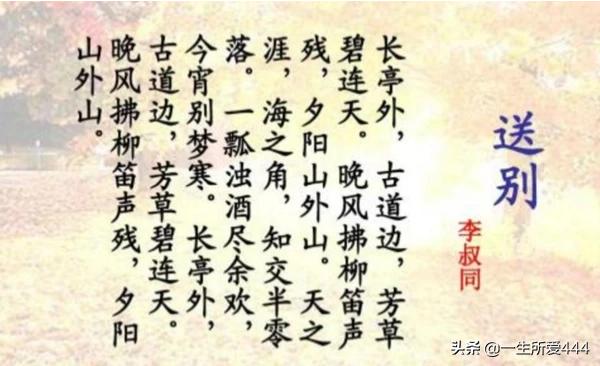 送别
李叔同
长亭外，古道边，芳草
碧连天。晚风拂柳笛声
残，夕阳山外山。天之
涯，海之角，知交半零
落。一瓢浊酒尽余欢，
今宵别梦寒。长亭外，
古道边，芳草碧连天。
晚风拂柳笛声残，夕阳
山外山。
头条 @一生所爱444